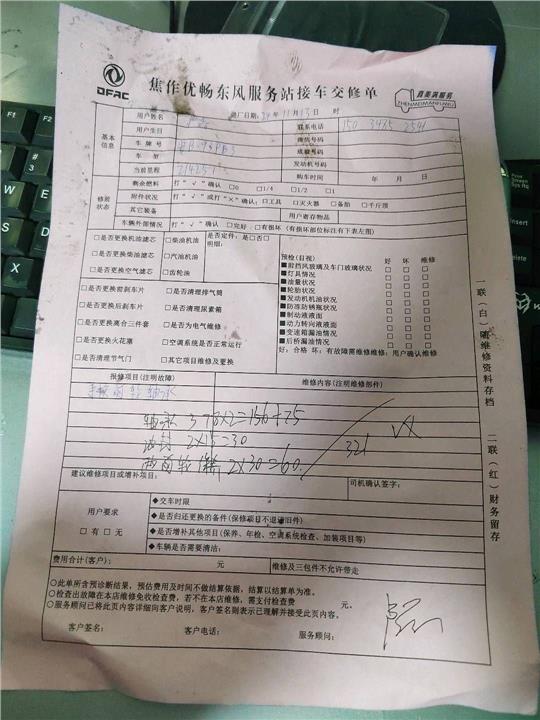 DFAC
焦作优畅东风服务站接车交修单
真美满服务
ZHENMEIMANFUWU
用户姓名
进厂日期:24年11月13日 时
联系电话
基本信息
用户生日
微信号码
车牌号
底盘号码
车型
发动机号
当前里程
购车时间
年 月 日
修前状态
剩余燃料 打"√"确认 □0 □1/4 □1/2 □1
附件状况 打"√"或打"×"确认:□工具 □灭火器 □备胎 □千斤顶
其它装备
用户寄存物品
车辆外部情况 打"√"确认 □完好; □有损坏(有损坏部位标注有下表左图)
□是否更换机油滤芯 □柴油机油
是否定件: 是□否□
明细:
□是否更换柴油滤芯 □汽油机油
□是否更换空气滤芯 □齿轮油
预检(目视) 好 坏 维修
■前挡风玻璃及车门玻璃状况 □ □ □
■灯具情况 □ □ □
■油量状况 □ □ □
■轮胎状况 □ □ □
■发动机机油状况 □ □ □
■防冻防锈瓶状况 □ □ □
■制动液液面 □ □ □
■动力转向液液面 □ □ □
■变速箱漏油情况 □ □ □
■后桥漏油情况 □ □ □
好:合格 坏:有故障需维修维修:用户确认维修
□是否更换前刹车片 □是否清理排气筒
□是否更换后刹车片 □是否清理尿素箱
□是否更换离合三件套 □是否为电气维修
□是否更换火花塞 □空调系统是否正常运行
□是否清理节气门 □其它项目维修及更换
报修项目(注明故障)
维修内容(注明维修部件)
轴承 3 78×2=156+75
油封 2×15=30
两前轮 2×30=60
321
建议维修项目或增补项目:
司机确认签字:
用户要求
□有 □无
◆交车时限
◆是否归还更换的备件(保修项目不退还旧件)
◆是否增补其他项目(保养、年检、空调系统检查、加装项目等)
◆车辆是否需要清洁:
费用合计(客户): 元
维修及三包件不允许带走
○此单所含预诊断结果,预估费用及时间不做结算依据,结算以结算单为准。
○检查出故障在本店维修免收检查费,若不在本店维修,需支付检查费 元。
○服务顾问已将此页内容详细向客户说明,客户签名则表示已理解并接受此页内容。
客户签名: 客户电话: 服务顾问:
一联(白)随维修资料存档
二联(红)财务留存